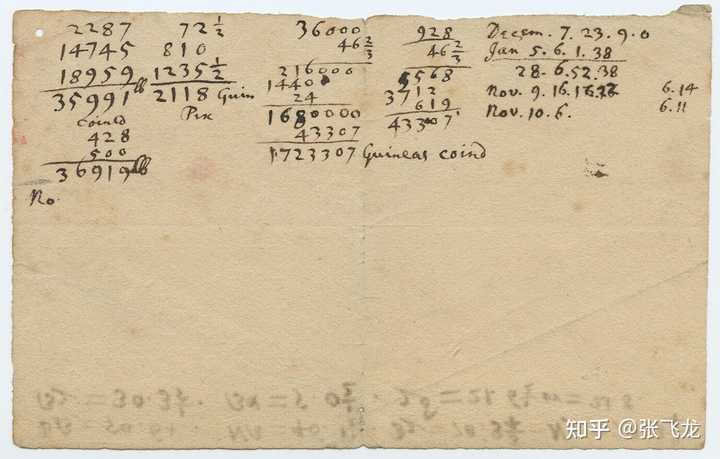 2287
14745
18959
35991 lb
coind
428
500
36919 lb
No
72 1/2
810
1235 1/2
2118 Guin
Pix
36000
46 2/3
216000
14400
24
1680000
43307
1723307 Guineas coind
928
46 2/3
5568
3712
619
43307
Decem. 7. 23. 9. 0
Jan 5. 6. 1. 38
28. 6. 52. 38
Nov. 9. 16. 6.14
Nov. 10. 6. 6.11
知乎 @张飞龙